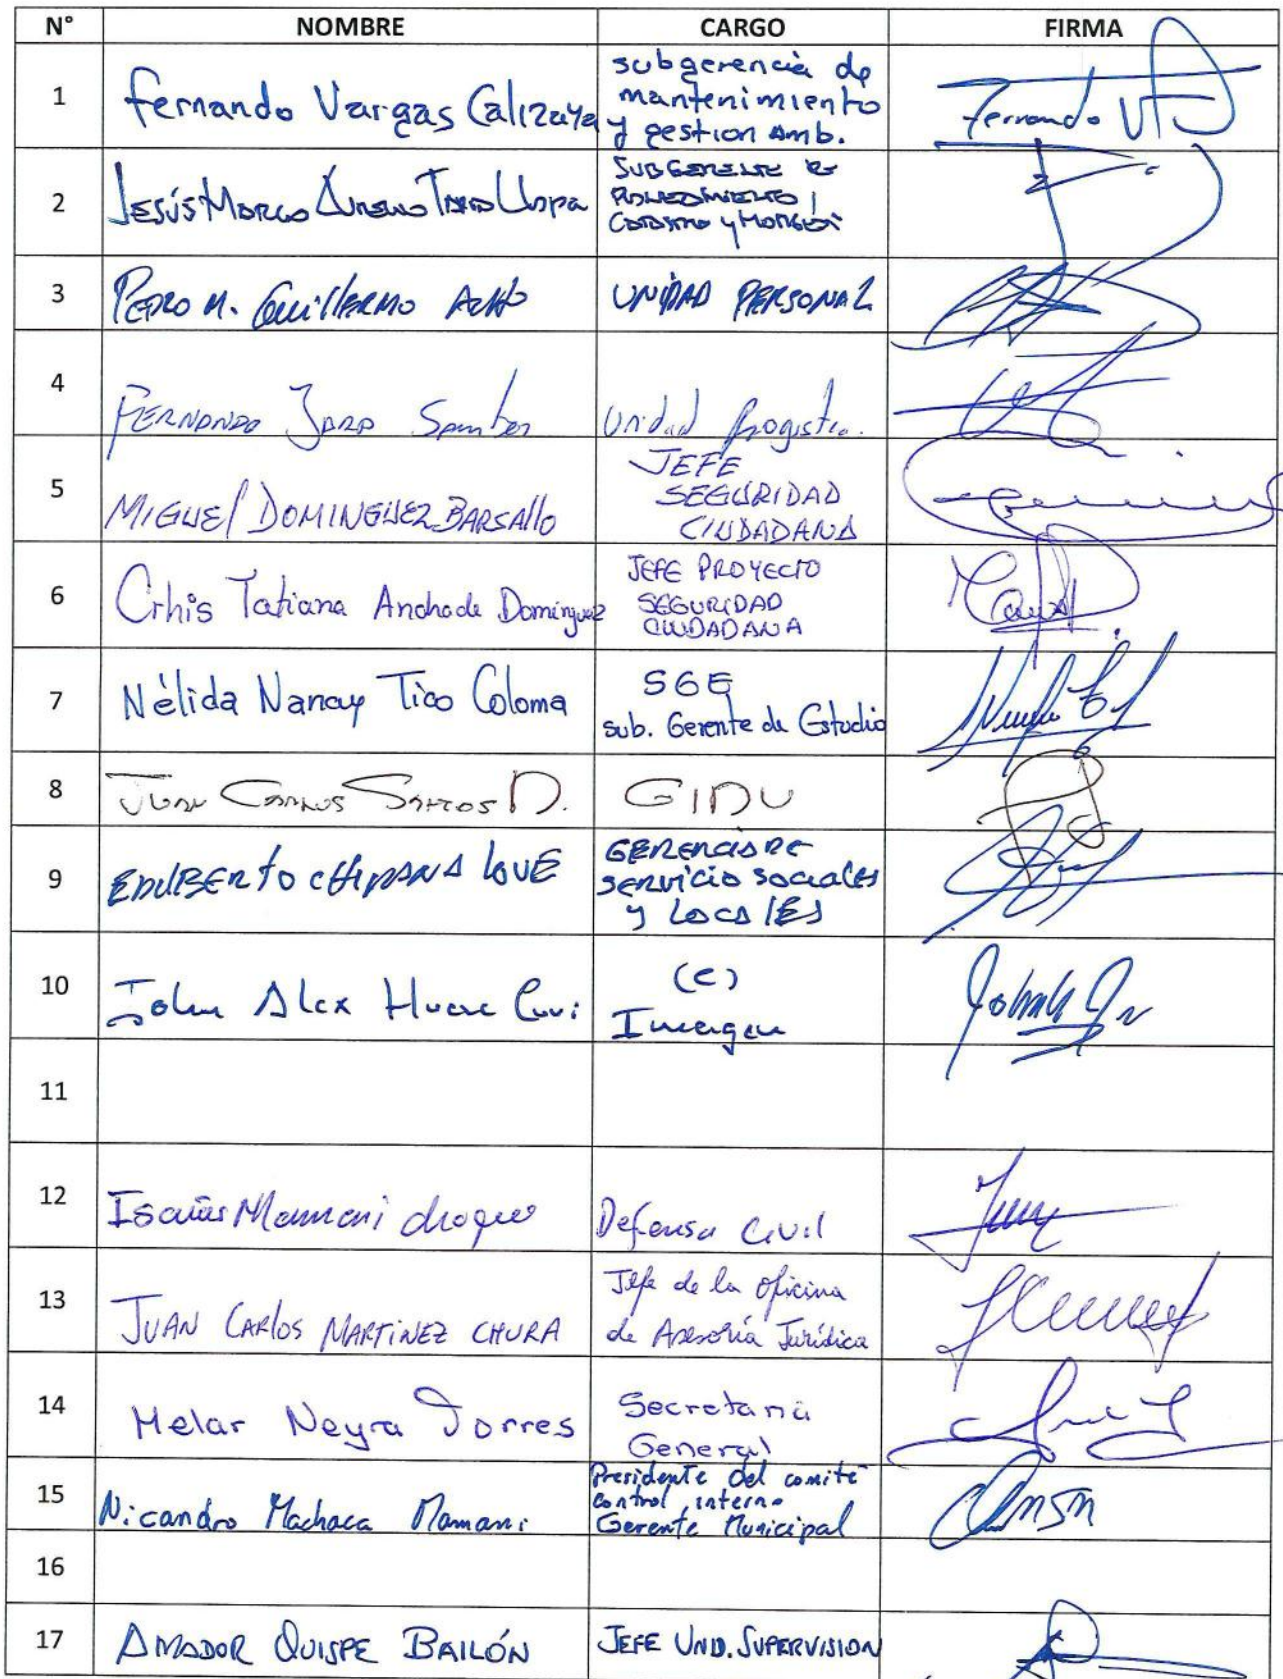 N° NOMBRE CARGO FIRMA
1 Fernando Vargas Calizaya subgerencia de
mantenimiento
y gestion Amb.
Fernando
2 Jesús Marco
SUBGERENTE
Catastro y
3 PEDRO M. Guillermo UNIDAD PERSONAL
4 FERNANDO JARA Santos Unidad
5 MIGUEL DOMINGUEZ BARSAllo JEFE
SEGURIDAD
CIUDADANA
6 Crhis Tatiana Andrade Dominguez JEFE PROYECTO
SEGURIDAD
CIUDADANA
7 Nélida Nancy Tico Coloma SGE
sub. Gerente de Estudio
8 JUAN CARLOS SANTOS D. GIDU
9 EDILBERTO CHIPANA LOVE GERENCIA DE
SERVICIO SOCIALES
y LOCALES
10 John Alex (e)
Imagen
11
12 Isaías Mamani choque Defensa Civil
13 JUAN CARLOS MARTINEZ CHURA Jefe de la Oficina
de Asesoría Jurídica
14 Melar Neyra Torres Secretaria
General
15 Nicandro Machaca Mamani Presidente del comité
control interno
Gerente Municipal
16
17 AMADOR QUISPE BAILÓN JEFE UND. SUPERVISION